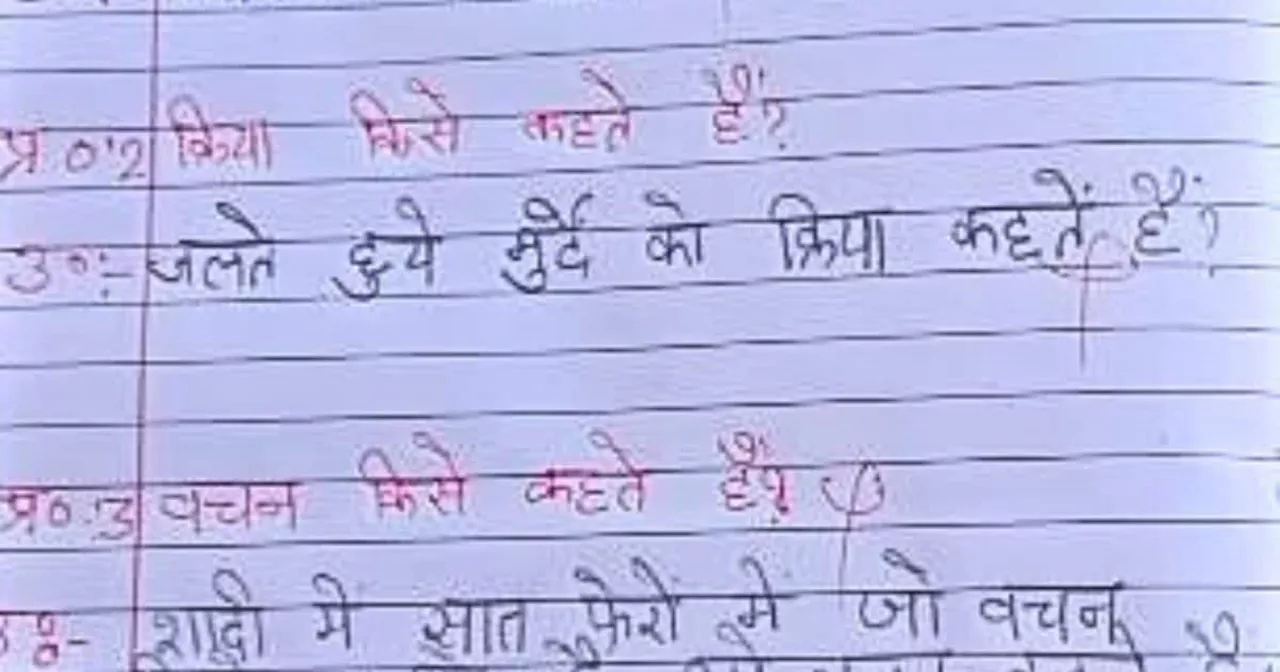 प्र०'2 क्रिया किसे कहते हैं?
उ०:- जलते हुये मुर्दे को क्रिया कहतें हैं?
प्र०.3 वचन किसे कहते हैं?
उ०:- शादी में सात फेरों में जो वचन